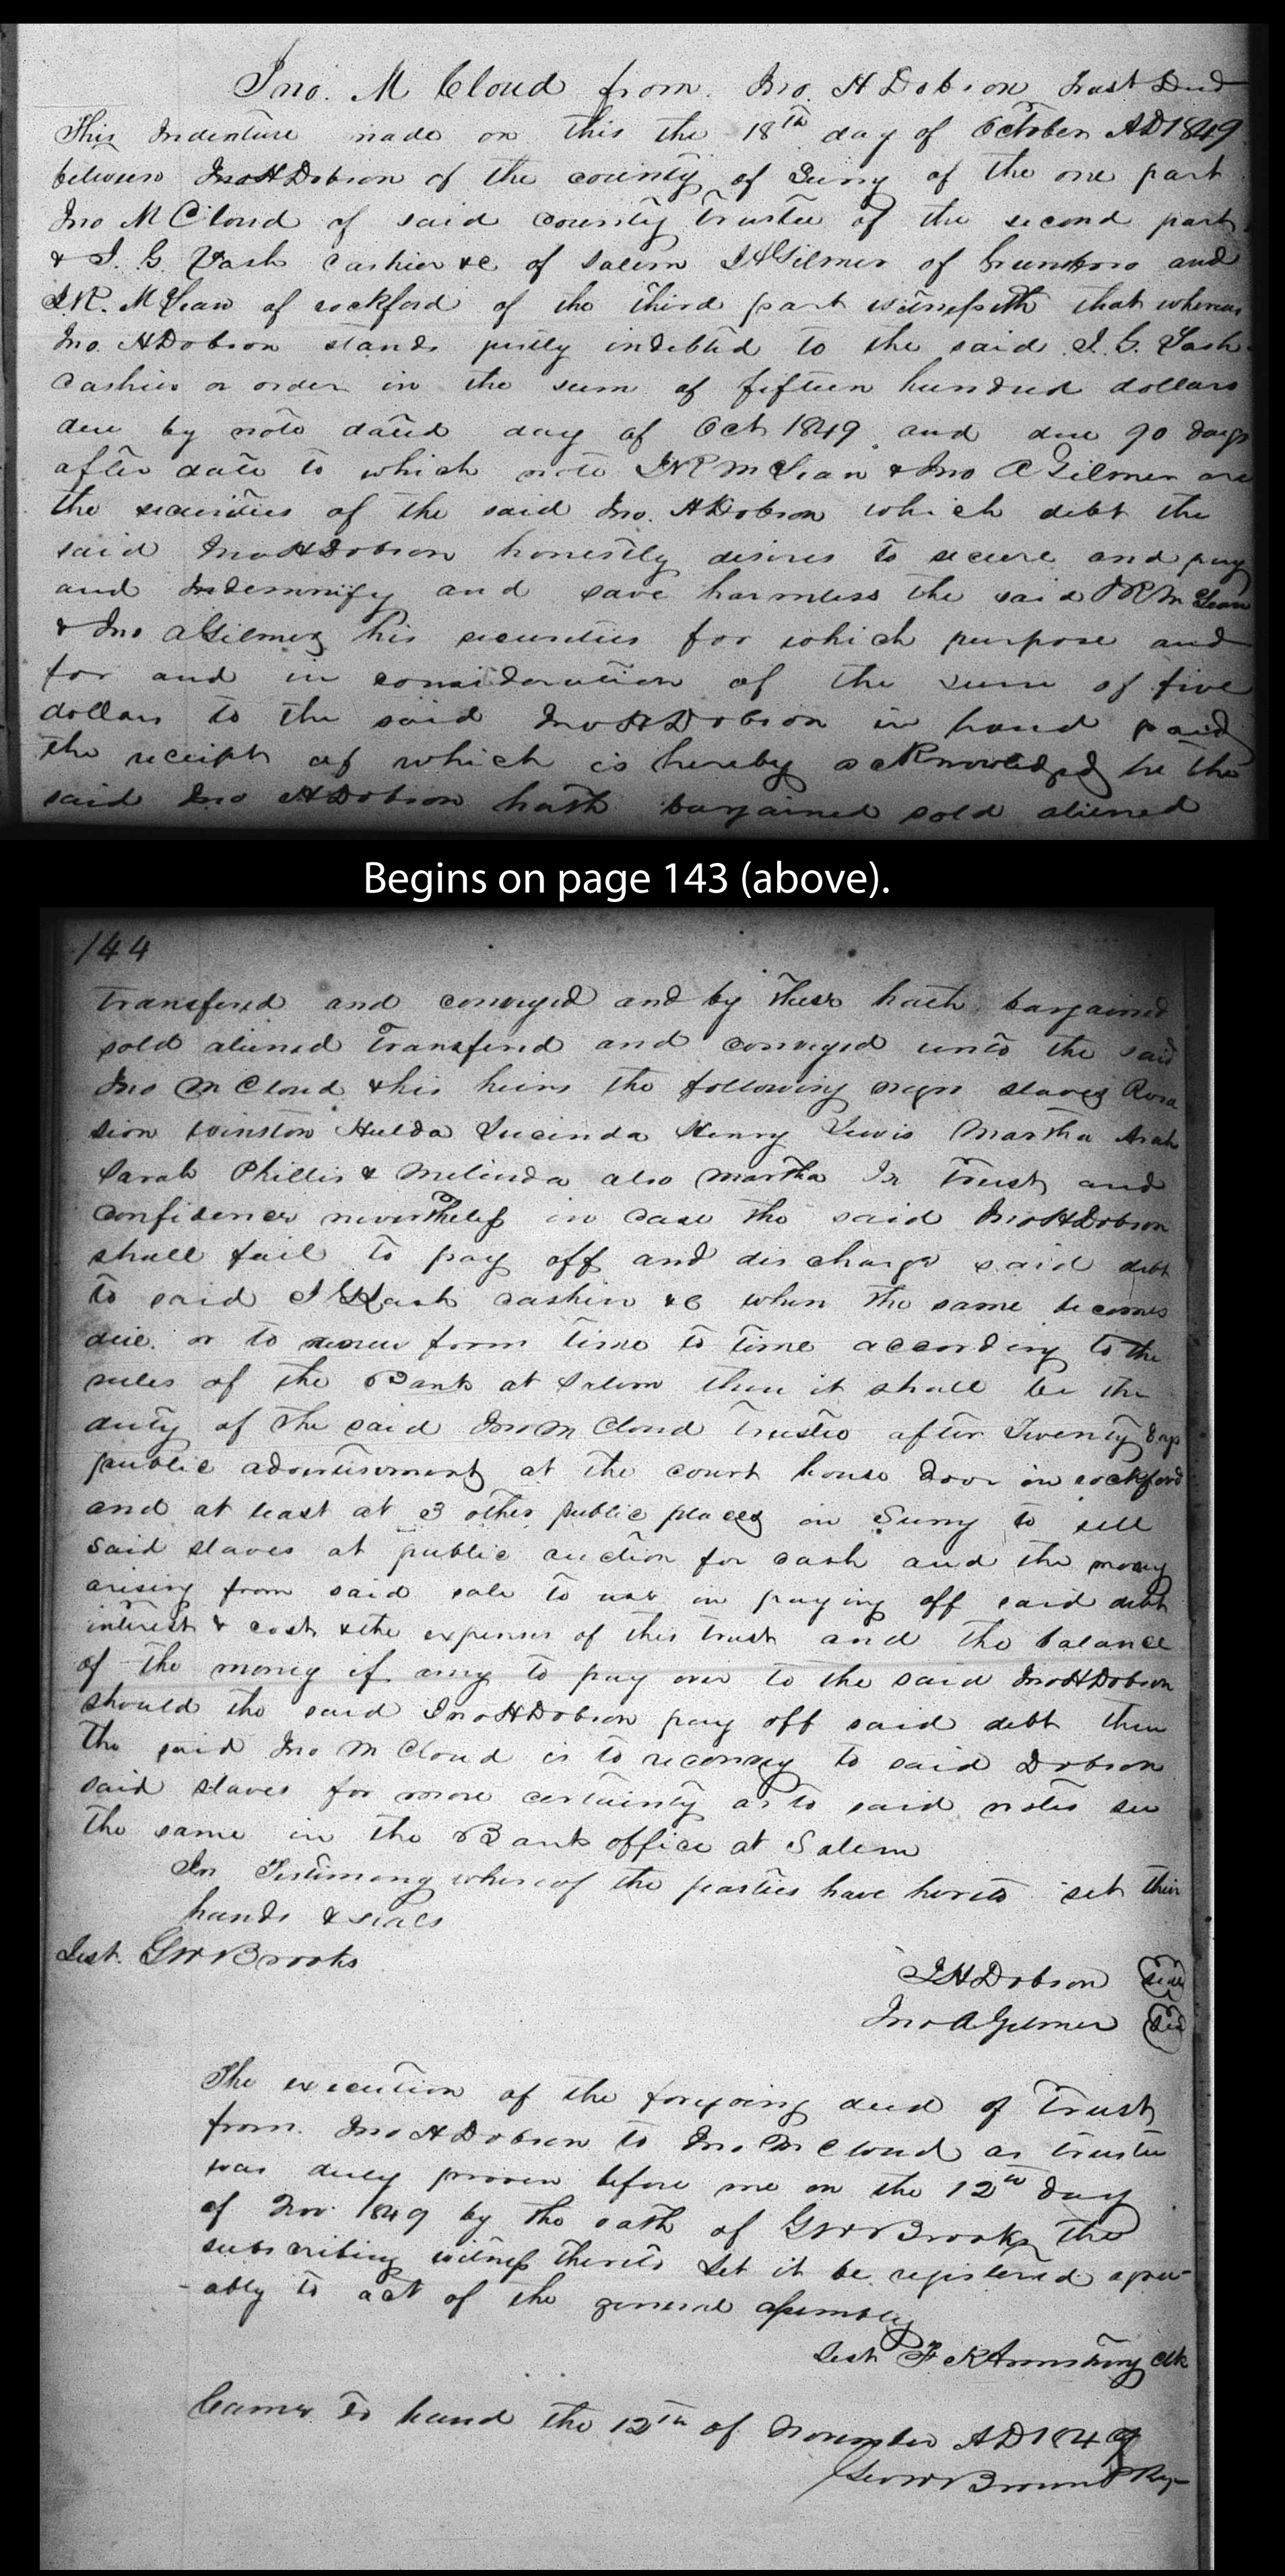 Jno. M Cloud from. Jno. H Dobson Trust Deed
This Indenture made on this the 18th day of October AD 1849
between Jno H Dobson of the county of Surry of the one part
Jno M Cloud of said county trustee of the second part
& I. G. Lash Cashier &c of Salem J A Gilmer of Greensboro and
J. R. McLean of rockford of the third part witnesseth that whereas
Jno. H Dobson stands justly indebted to the said I. G. Lash
Cashier or order in the sum of fifteen hundred dollars
due by note dated day of Oct 1849 and due 90 days
after date to which note J R McLean & Jno A Gilmer are
the securities of the said Jno. H Dobson which debt the
said Jno H Dobson honestly desires to secure and pay
and Indemnify and save harmless the said J R McLean
& Jno A Gilmer his securities for which purpose and
for and in consideration of the sum of five
dollars to the said Jno H Dobson in hand paid
the receipt of which is hereby acknowledged he the
said Jno H Dobson hath bargained sold aliened
Begins on page 143 (above).
144
transferred and conveyed and by these hath bargained
sold aliened transferred and conveyed unto the said
Jno M Cloud & his heirs the following negro slaves
sion Winston Hulda Lucinda Henry Lewis Martha
Sarah Phillis & Melinda also Martha In Trust and
confidence nevertheless in case the said Jno H Dobson
shall fail to pay off and discharge said debt
to said I G Lash cashier &c when the same becomes
due or to renew from time to time according to the
rules of the Bank at Salem then it shall be the
duty of the said Jno M Cloud trustee after Twenty days
public advertisement at the court house door in rockford
and at least at 3 other public places in Surry to sell
said slaves at public auction for cash and the money
arising from said sale to use in paying off said debt
interest & cost & the expenses of this trust and the balance
of the money if any to pay over to the said Jno H Dobson
should the said Jno H Dobson pay off said debt then
the said Jno M Cloud is to reconvey to said Dobson
said slaves for more certainty as to said notes see
the same in the Bank office at Salem
In Testimony whereof the parties have hereto set their
hands & seals
Test. G W Brooks
J H Dobson seal
Jno A Gilmer seal
The execution of the foregoing deed of Trust
from Jno H Dobson to Jno M Cloud as trustee
was duly proven before me on the 12th day
of Nov 1849 by the oath of G W Brooks the
subscribing witness thereto Let it be registered agree-
-ably to act of the general assembly
Test F K Armstrong Clk
Came to hand the 12th of November AD 1849